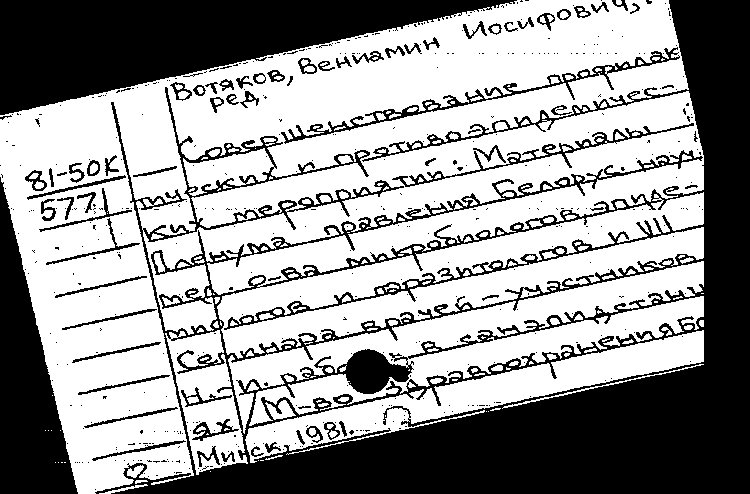 Вотяков, Вениамин Иосифович,
ред.
Совершенствование профилак
81-50К
5771
тических и противоэпидемичес-
ких мероприятий: Материалы
Пленума правления Белорус. науч.
мед. о-ва микробиологов, эпиде-
миологов и паразитологов и VII
Семинара врачей - участников
Н.-и. работ в санэпидстанци
ях / М-во здравоохранения
Минск, 1981.
8